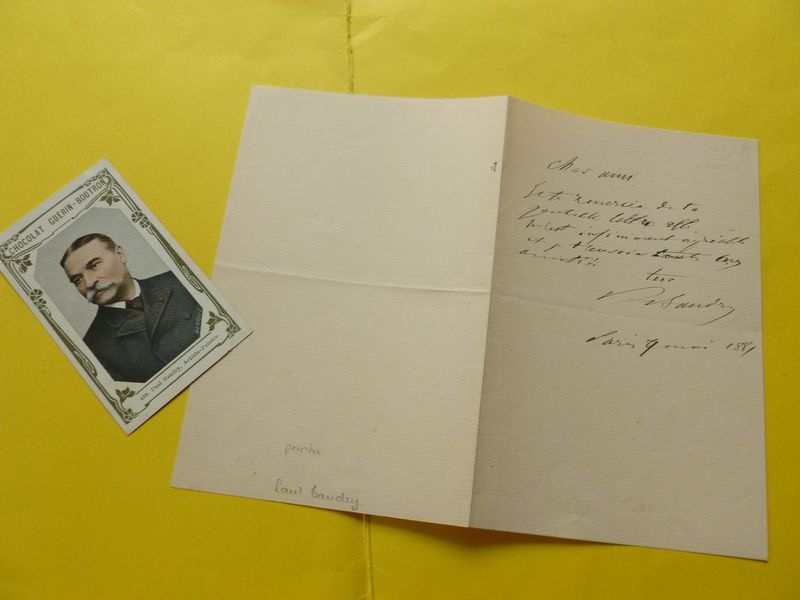 CHOCOLAT GUÉRIN-BOUTRON
Paul Baudry, Artiste-Peintre
Cher ami
Je te remercie de ta
gentille lettre elle
m'est infiniment agréable
et je t'envoie toutes mes
amitiés
ton
Baudry
Paris 9 mai 1881
peintre
Paul Baudry